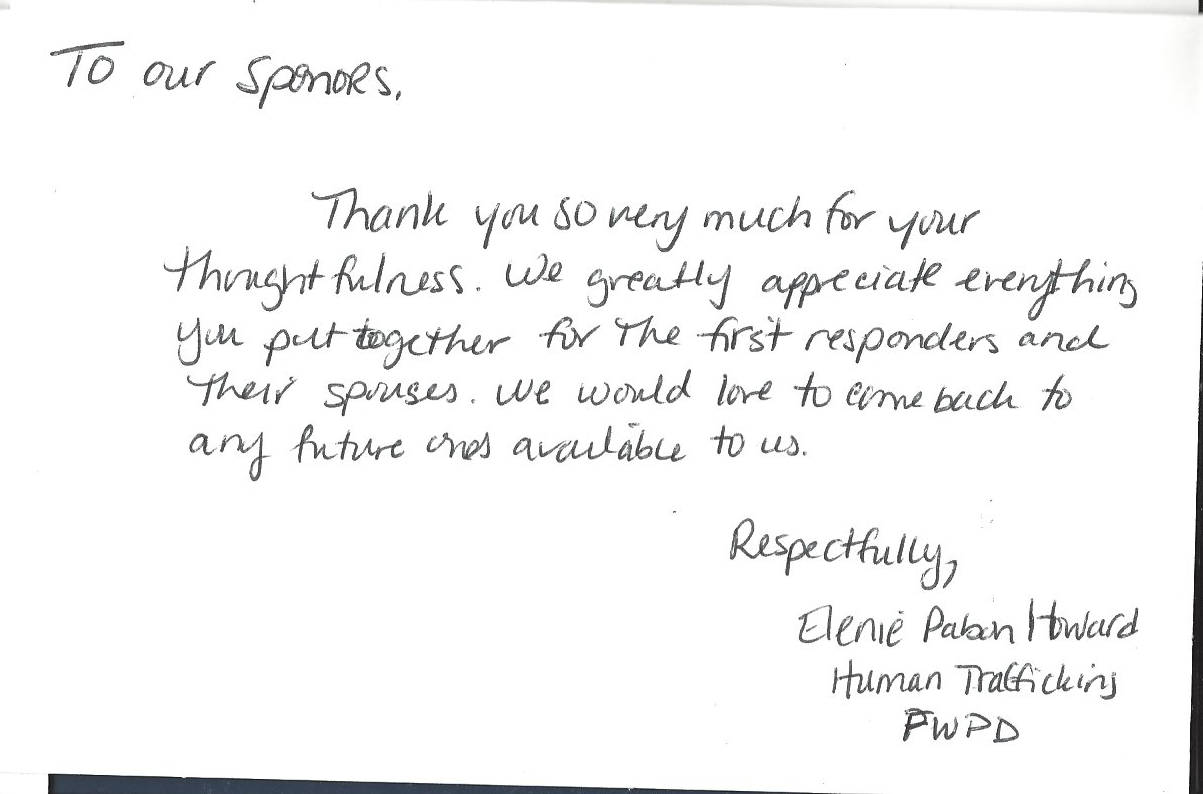 To our Sponors,
Thank you so very much for your
thoughtfulness. We greatly appreciate everything
you put together for the first responders and
their spouses. We would love to come back to
any future ones available to us.
Respectfully,
Elenie Pabon Howard
Human Trafficking
FWPD